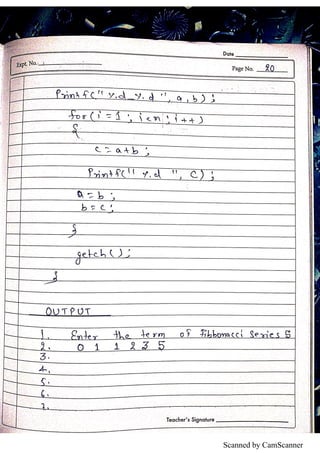 Date
Expt. No. 1
Page No. 20
Printf("%d_%d", a,b);
for(i=1; i<n; i++)
{
c=a+b;
Printf("%d", c);
a=b;
b=c;
}
getch();
}
OUTPUT
1. Enter the term of fibbonacci Series 5
2. 0 1 1 2 3 5
3.
4.
5.
6.
7.
Teacher's Signature
Scanned by CamScanner